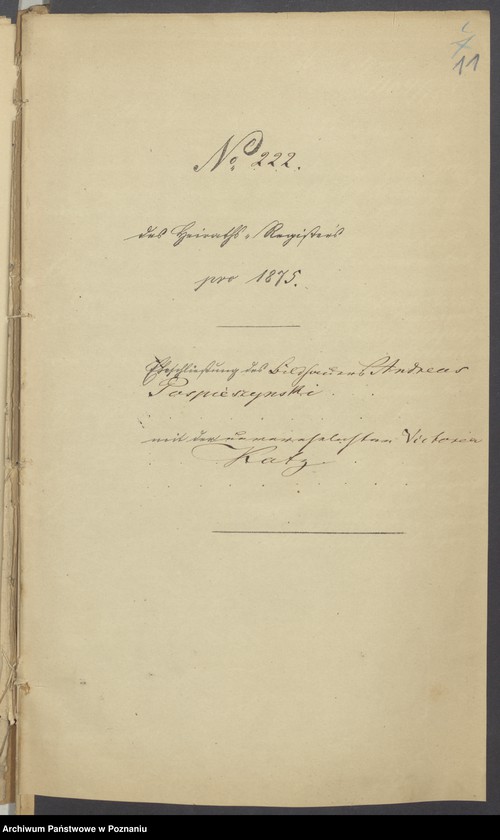 11
No 222.
des Heiraths-Registers
pro 1875.
Eheschließung des Bildhauers Andreas
Pospieszynski
mit der unverehelichten Victoria
Katz
Archiwum Państwowe w Poznaniu